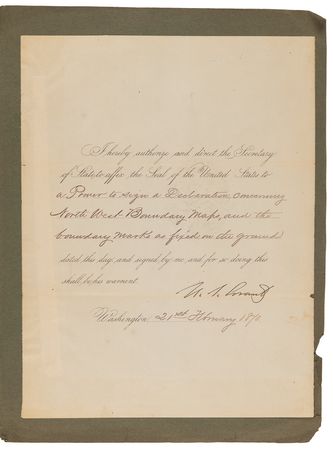 I hereby authorize and direct the Secretary
of State to affix the Seal of the United States to
a Power to sign a Declaration concerning
North West Boundary Maps, and the
boundary marks as fixed on the ground
dated this day, and signed by me, and for so doing this
shall be his warrant.
U. S. Grant
Washington, 21st February 1870.